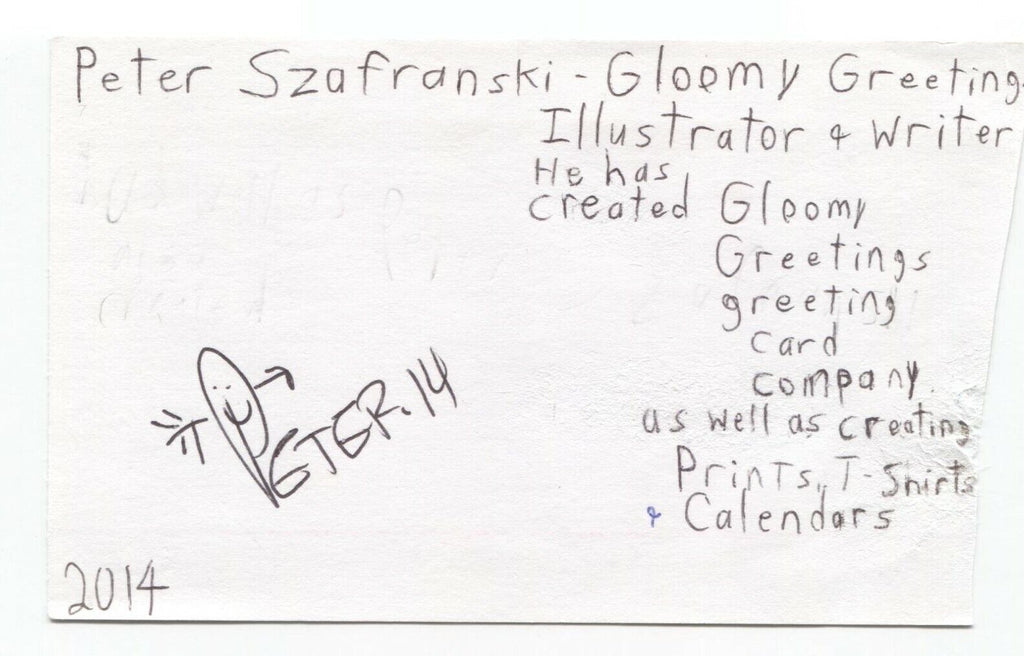 Peter Szafranski - Gloomy Greeting
Illustrator & Writer
He has
created Gloomy
Greetings
greeting
card
company
as well as creating
Prints, T-Shirts
& Calendars
PETER.14
2014